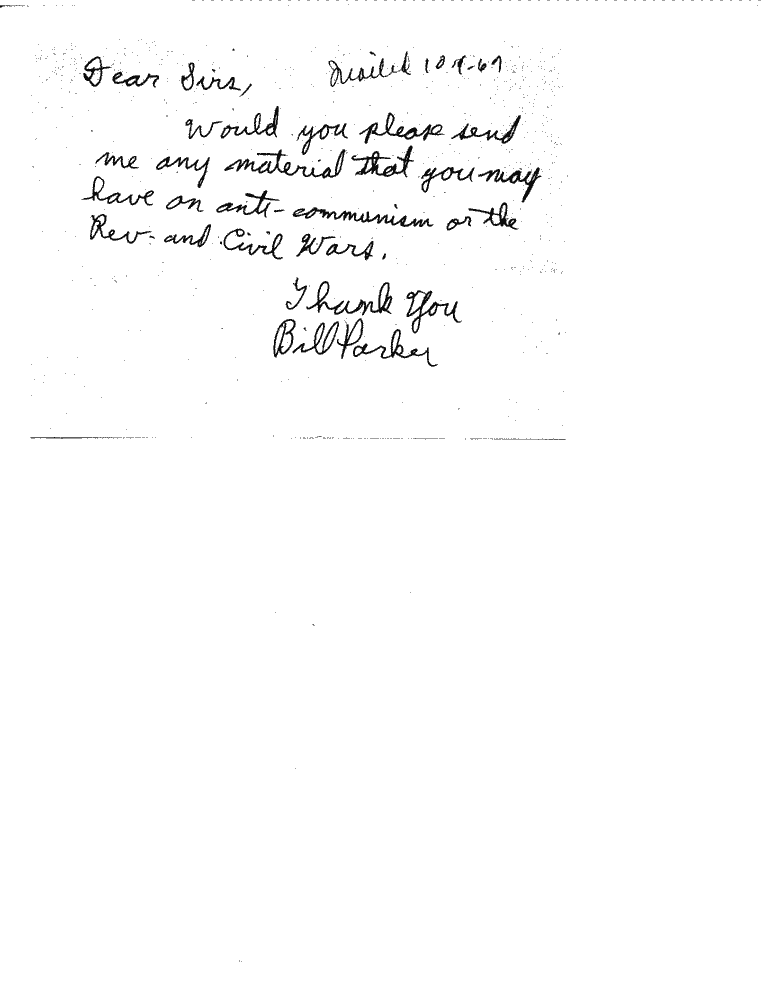 Dear Sirs, Mailed
Would you please send
me any material that you may
have on anti-communism or the
Rev. and Civil Wars.
Thank You
Bill Parker